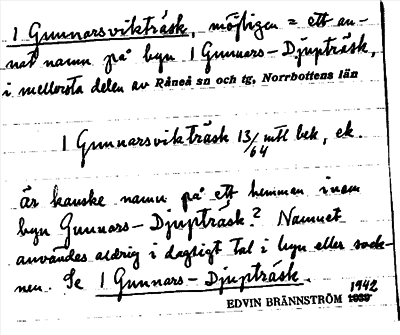 1 Gunnarsvikträsk, möjligen = ett an-
nat namn på byn 1 Gunnars-Djupträsk,
i mellersta delen av Råneå sn och tg, Norrbottens län
1 Gunnarsvikträsk 13/64 mtl bek, ek.
är kanske namn på ett hemman inom
byn Gunnars-Djupträsk? Namnet
användes aldrig i dagligt tal i byn eller sock-
nen. Se 1 Gunnars-Djupträsk.
1942
EDVIN BRÄNNSTRÖM 1939